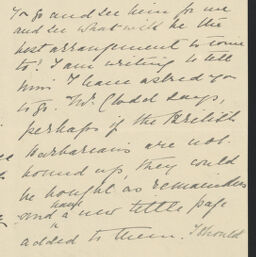 to go and see him for me
and see what will be the
best arrangement to come
to! I am writing to tell
him I have asked you
to go. Mr. Clodd says,
perhaps if the
Barbarians are not
bound up, they could
be bought as remainders
and have a new title page
added to them. I should